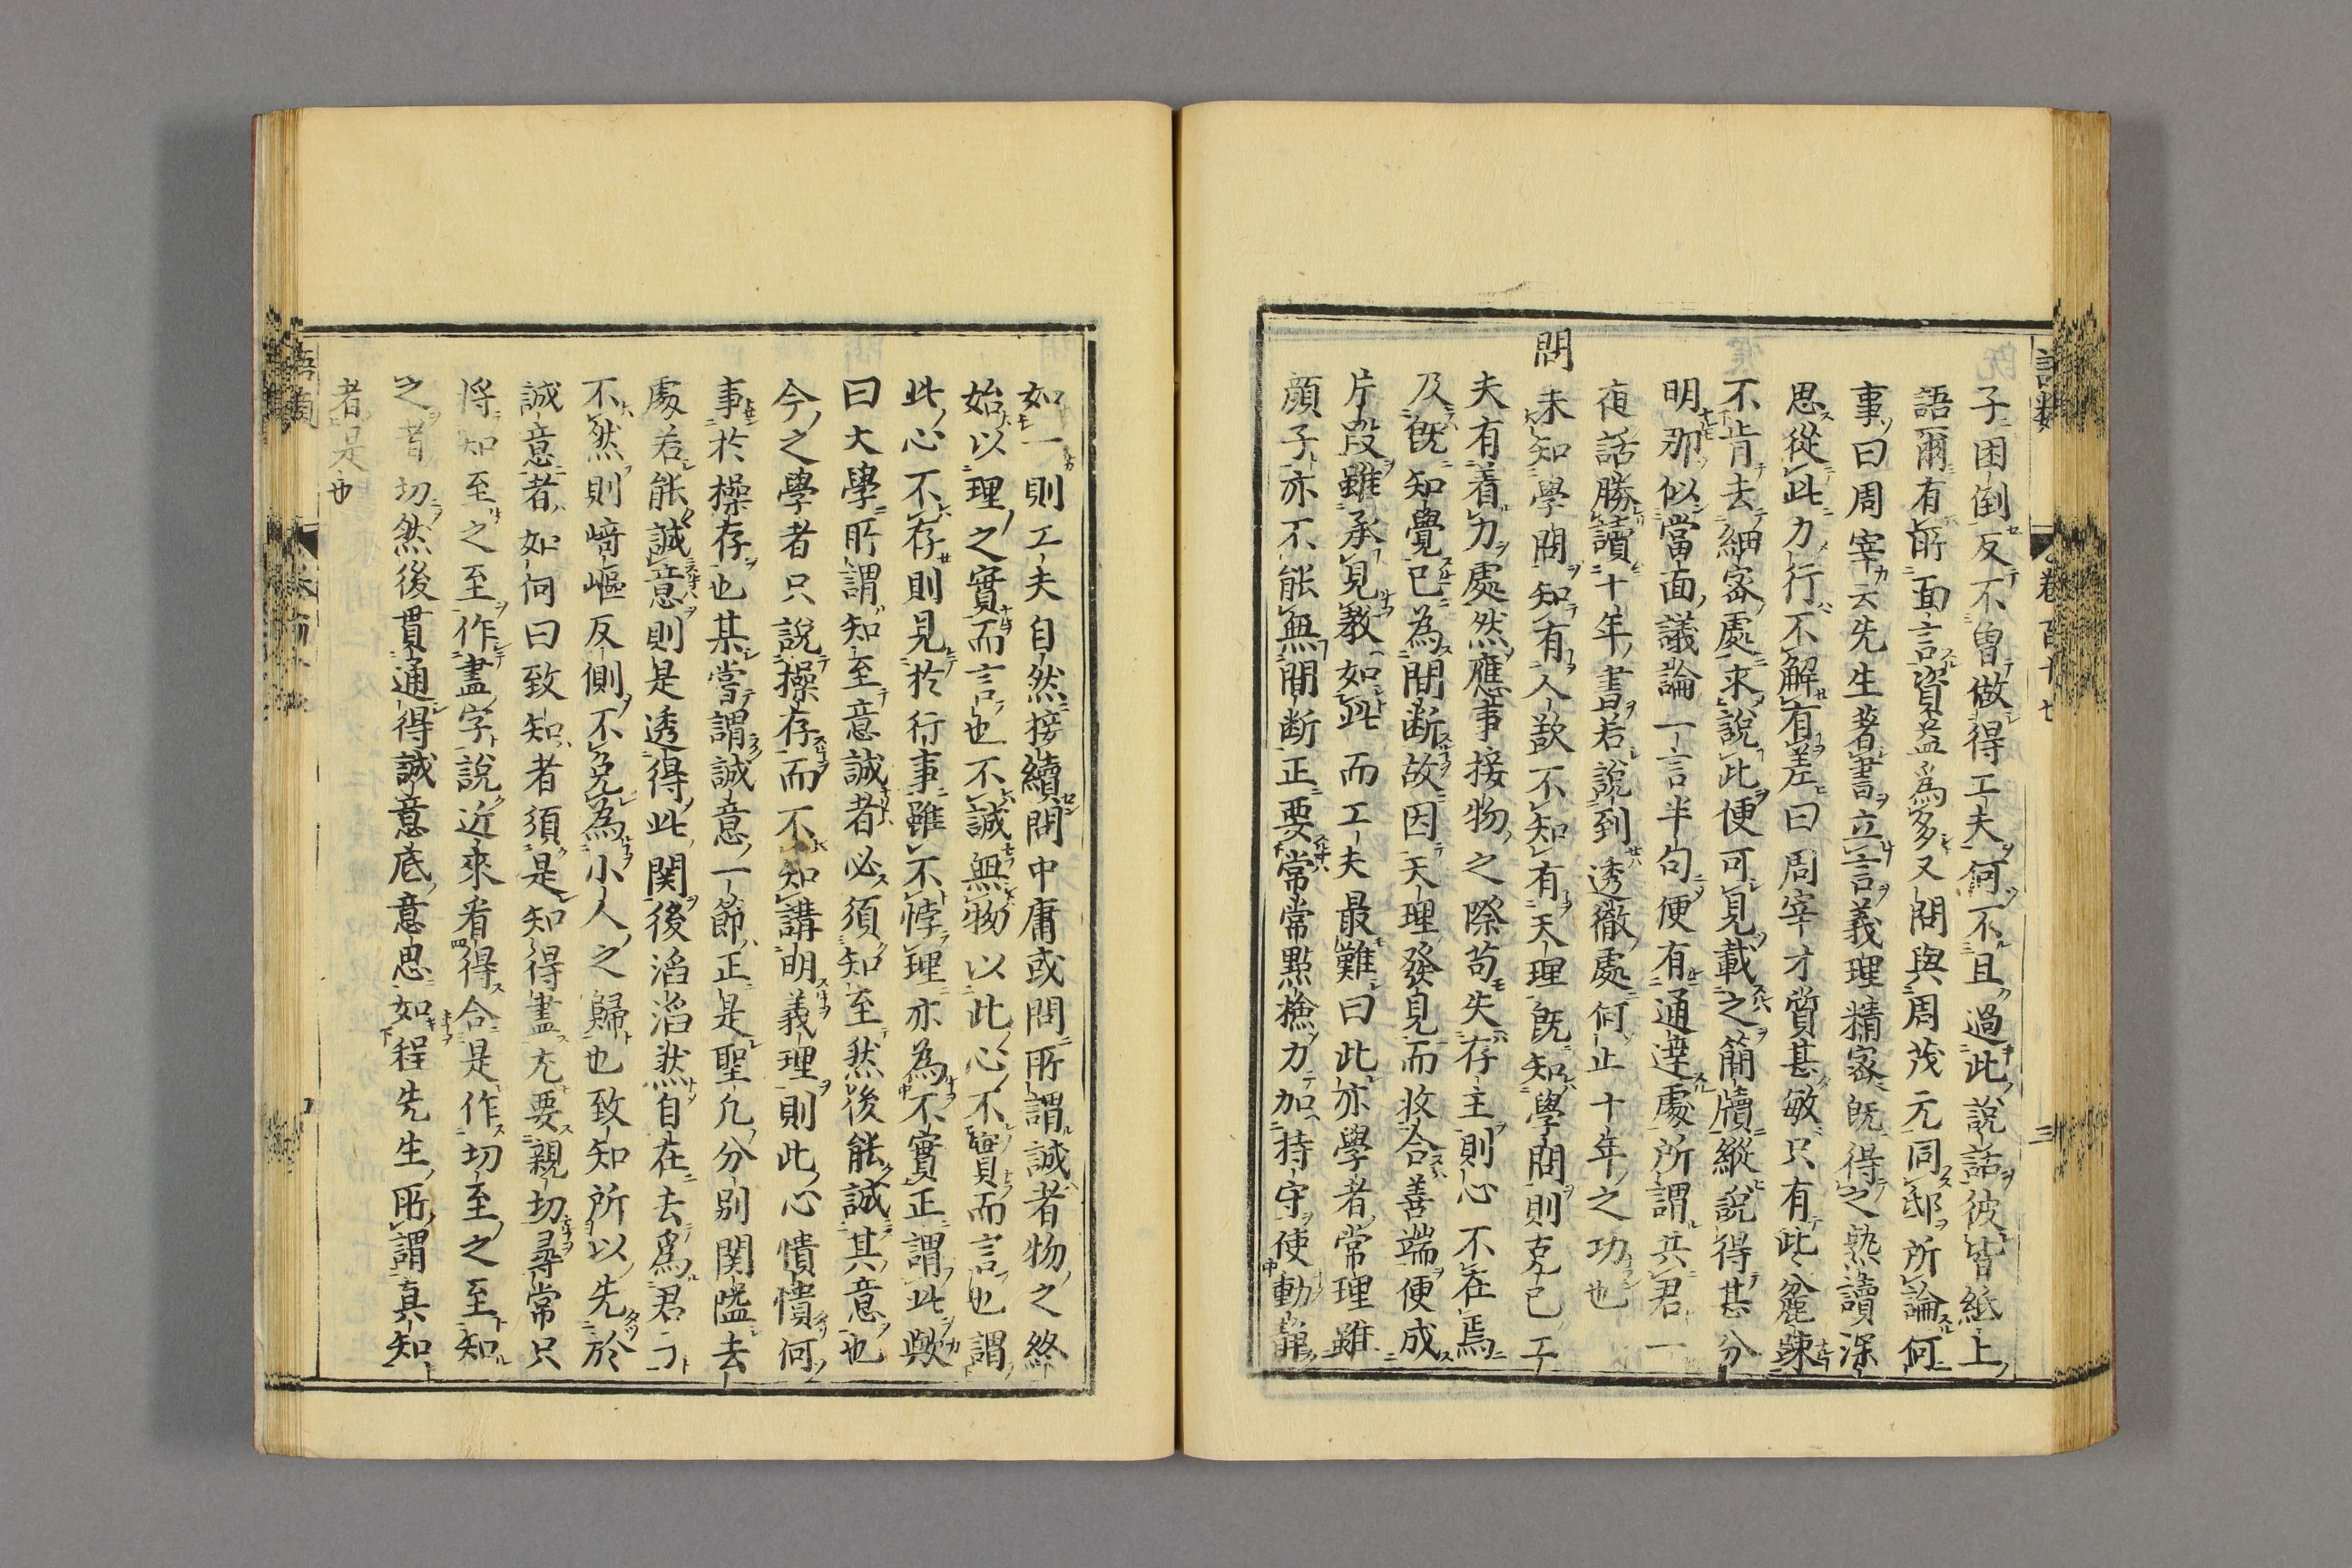 子困倒反不曽做得工夫何不且過此說話彼皆紙上
語爾有所面言資益爲多又問與周茂元同邸所論何
事曰周宰云先生著書立言義理精密既得之熟讀深
思從此力行不解有差曰周宰才質甚敏只有此麄踈
不肯去細密處求說此便可見載之簡牘縱說得甚分
明那似當面議論一言半句便有通達處所謂共君一
夜話勝讀十年書若說到透徹處何止十年之功也
問未知學問知有人欲不知有天理既知學問則克已工
夫有着力處然應事接物之際苟失存主則心不在焉
及既知覺已為間断故因天理發見而收合善端便成
片段雖承見教如此而工夫最難曰此亦學者常理雖
顔子亦不能無間断正要常常點檢力加持守使動静
如一則工夫自然接續問中庸或問所謂誠者物之終
始以理之實而言也不誠無物以此心不實而言也謂
此心不存則見於行事雖不悖理亦為不實正謂此歟
曰大學所謂知至意誠者必須知至然後能誠其意也
今之學者只說操存而不知講明義理則此心憒憒何
事於操存也某嘗謂誠意一節正是聖凡分别関隘去
處若能誠意則是透得此関後滔滔然自在去爲君子
不然則﨑嶇反側不免為小人之歸也致知所以先於
誠意者如何曰致知者須是知得盡尤要親切尋常只
将知至之至作盡字說近來看得合是作切至之至知
之者切然後貫通得誠意底意思如程先生所謂真知
者是也